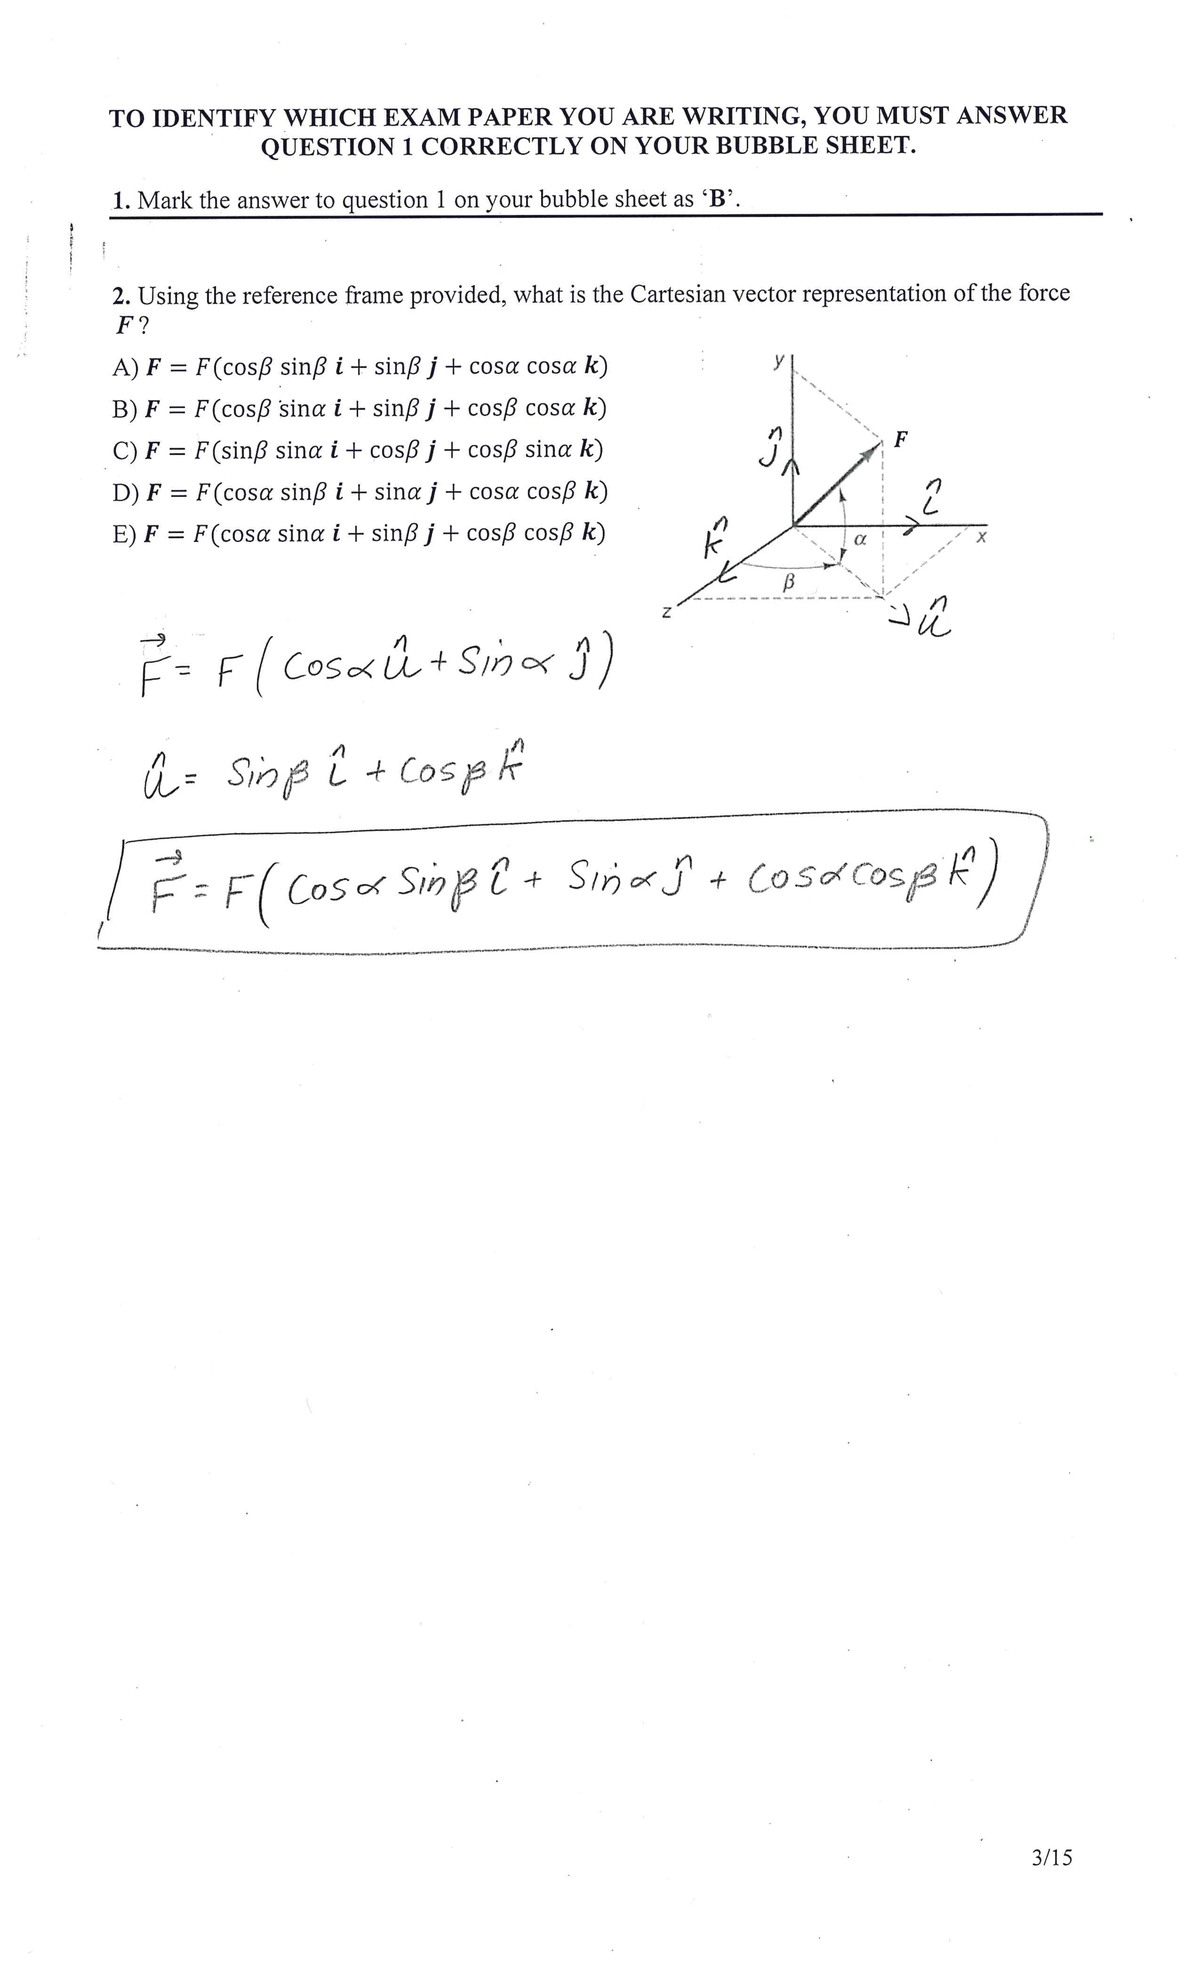 TO IDENTIFY WHICH EXAM PAPER YOU ARE WRITING, YOU MUST ANSWER
QUESTION 1 CORRECTLY ON YOUR BUBBLE SHEET.
1. Mark the answer to question 1 on your bubble sheet as ‘B’.
2. Using the reference frame provided, what is the Cartesian vector representation of the force
F?
A) F = F(cosβ sinβ i + sinβ j + cosα cosα k)
B) F = F(cosβ sinα i + sinβ j + cosβ cosα k)
C) F = F(sinβ sinα i + cosβ j + cosβ sinα k)
D) F = F(cosα sinβ i + sinα j + cosα cosβ k)
E) F = F(cosα sinα i + sinβ j + cosβ cosβ k)
y
F
ĵ
î
k̂
α
x
β
z
û
F⃗ = F(Cosα û + Sinα ĵ)
û = Sinβ î + Cosβ k̂
F⃗ = F(Cosα Sinβ î + Sinα ĵ + Cosα Cosβ k̂)
3/15